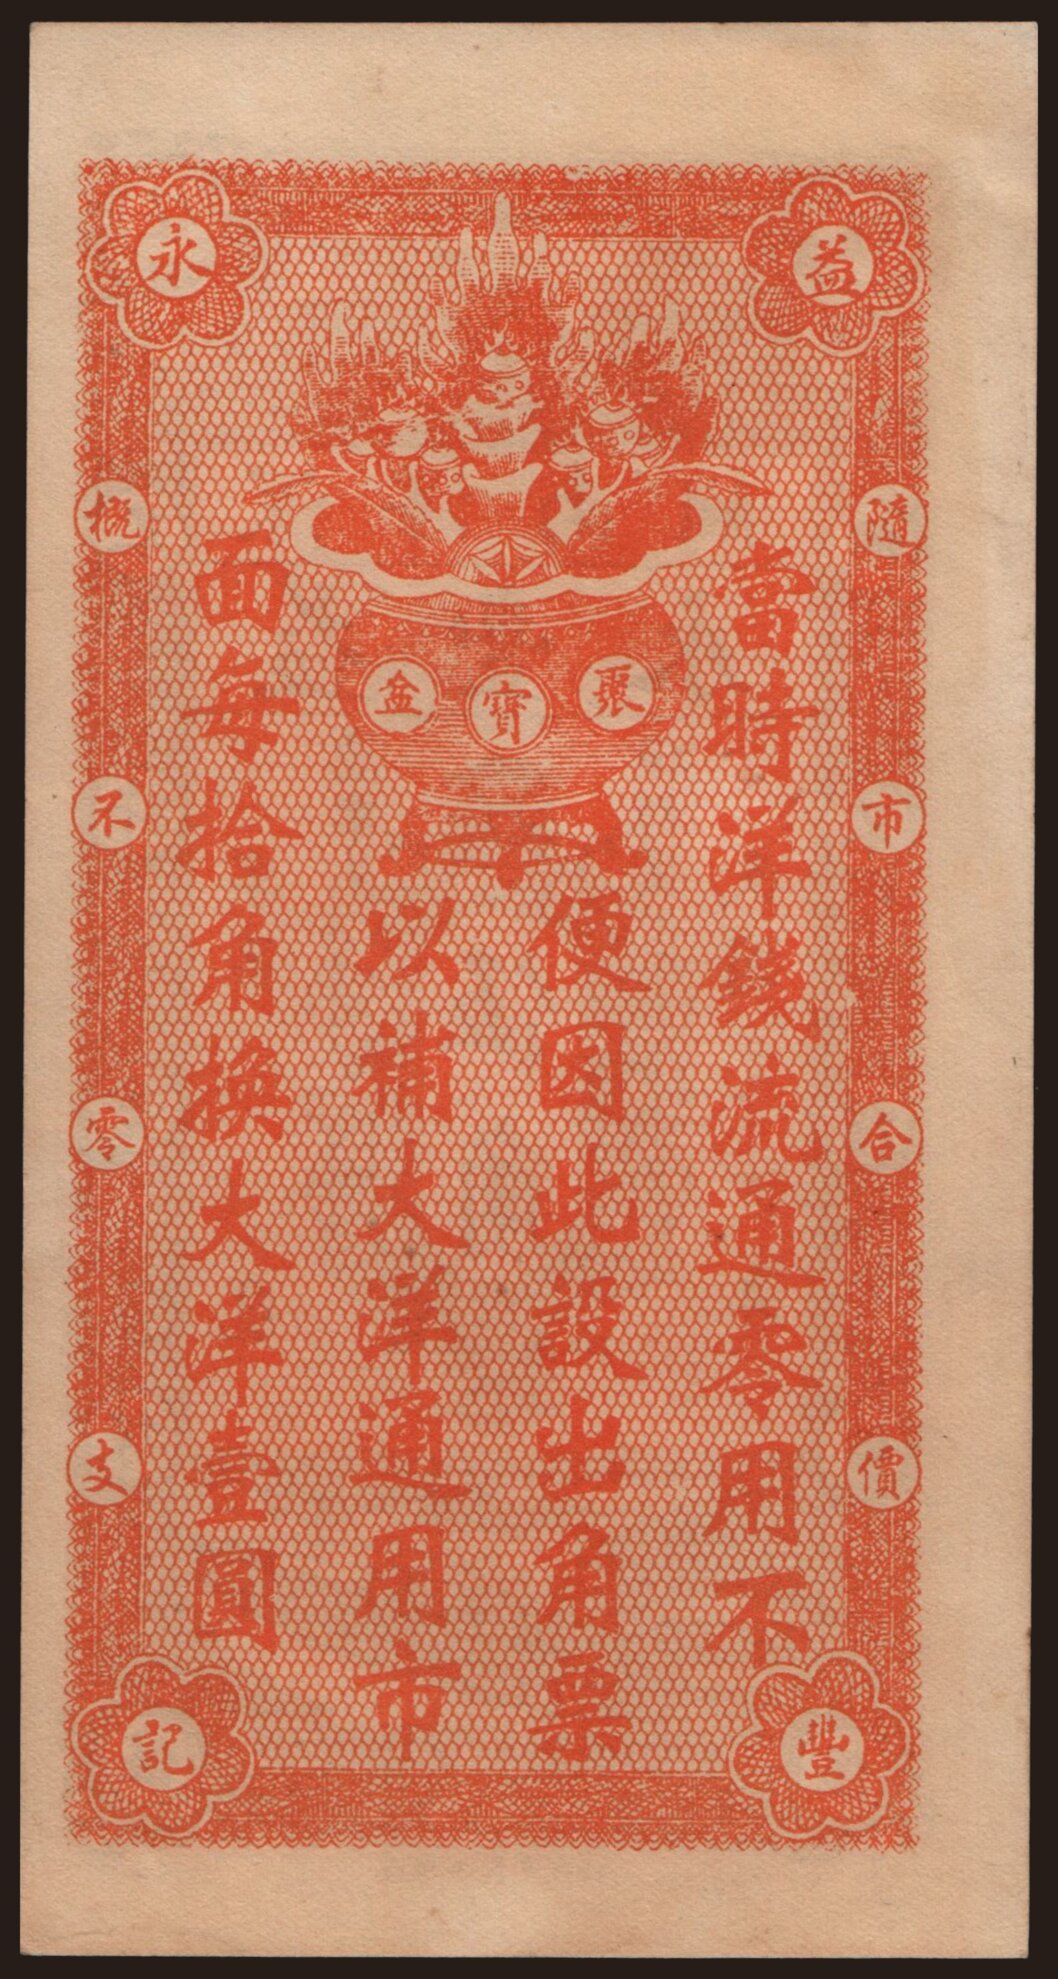 益豐
永記
隨市合價
概不零支
聚寶盆
當時洋錢流通零用不
便因此設出角票
以補大洋通用市
面每拾角換大洋壹圓